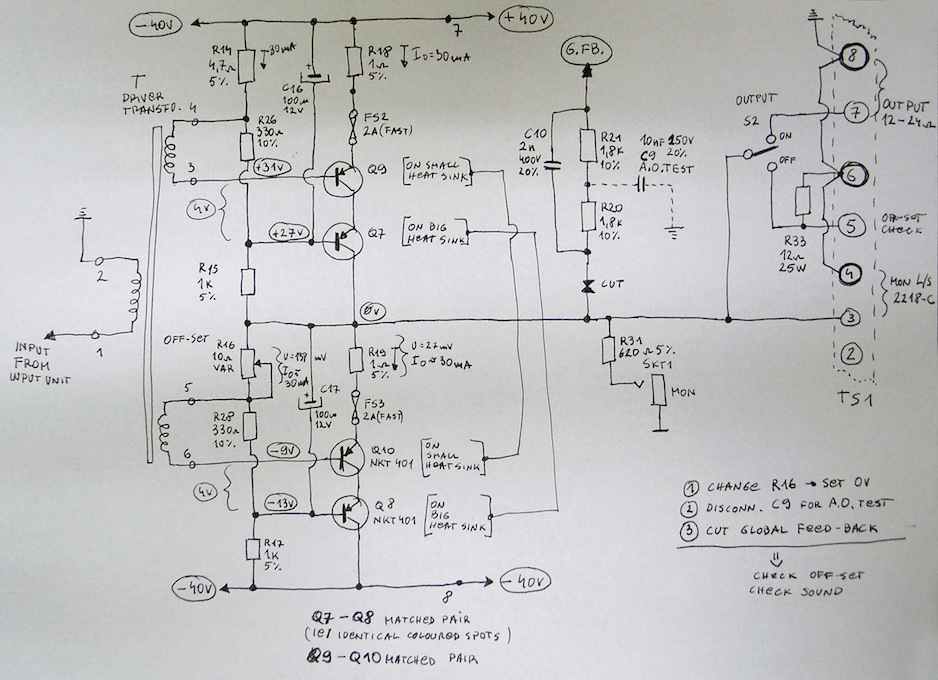 -40V
7
+40V
R14
4,7Ω
5%
30mA
C16
100μ
12V
R18
1Ω
5%
I0=30mA
T
DRIVER
TRANSFO.
4
R26
330Ω
10%
FS2
2A (FAST)
3
+31V
Q9
[ON SMALL
HEAT SINK]
4V
+27V
Q7
[ON BIG
HEAT SINK]
R15
1K
5%
2
1
INPUT
FROM
INPUT UNIT
0V
OFF-SET
R16
10Ω
VAR
U=158 mV
I0=
30mA
C17
100μ
12V
R19
1Ω
5%
U=27mV
I0=30mA
5
R28
330Ω
10%
FS3
2A (FAST)
6
-9V
Q10
NKT 401
[ON
SMALL
HEAT SINK]
4V
-13V
Q8
NKT401
[ON
BIG
HEAT SINK]
R17
1K
5%
-40V
8
-40V
G.FB.
C10
2n
400V
20%
R21
1,8K
10%
10nF 250V
C9 20%
A.O.TEST
R20
1,8K
10%
CUT
R31
620Ω 5%
SKT1
MON
OUTPUT
S2
ON
OFF
R33
12Ω
25W
8
7
OUTPUT
12-24Ω
6
5
OFF-SET
CHECK
4
MON L/S
2218-C
3
2
TS1
1 CHANGE R16 → SET 0V
2 DISCONN. C9 FOR A.O. TEST
3 CUT GLOBAL FEED-BACK
CHECK OFF-SET
CHECK SOUND
Q7-Q8 MATCHED PAIR
(IE/ IDENTICAL COLOURED SPOTS)
Q9-Q10 MATCHED PAIR